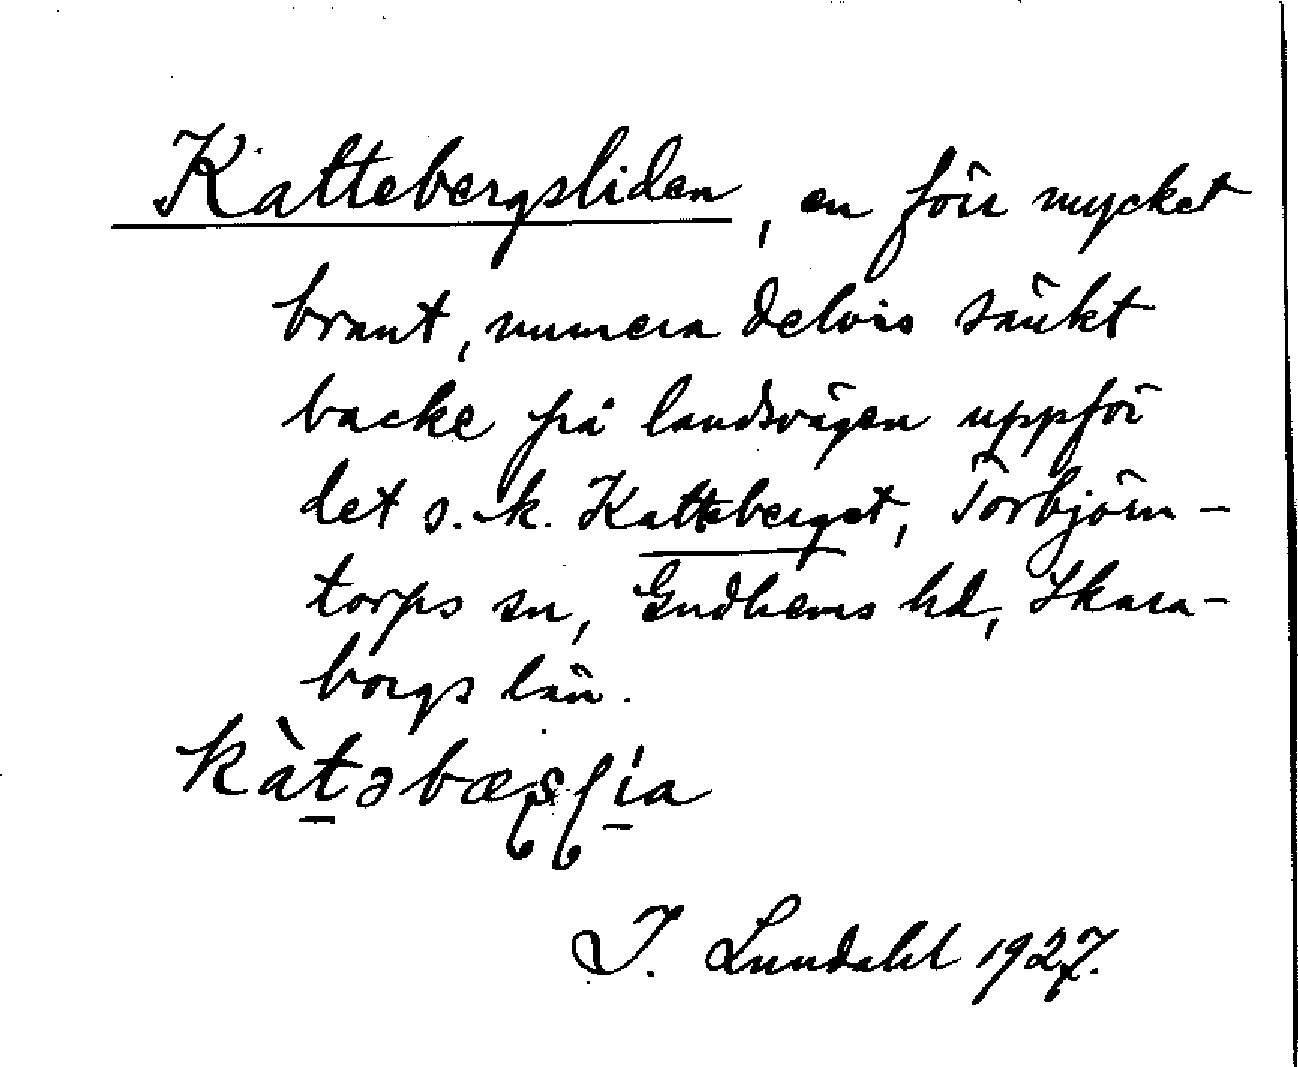 Kattebergsliden, en förr mycket
brant, numera delvis sänkt
backe på landsvägen uppför
det s.k. Katteberget, Torbjörn-
torps sn, Gudhems hd, Skara-
borgs län.
kàt̠əbæʂɭi̠a
I. Lundahl 1927.